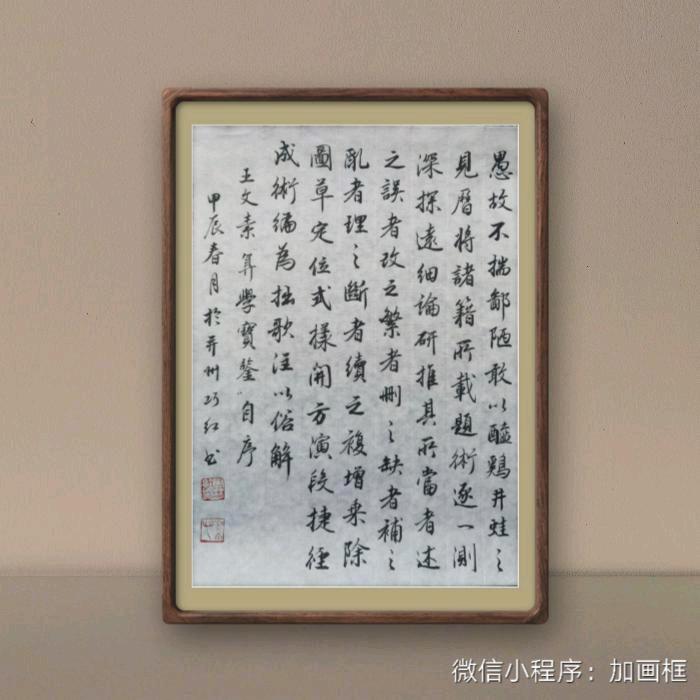 愚故不揣鄙陋敢以醯鷄井蛙之
見曆將諸籍所載題術逐一測
深探遠細論研推其所當者述
之誤者改之繁者刪之缺者補之
亂者理之斷者續之複增乘除
圖草定位式樣開方演段捷徑
成術編為拙歌注以俗解
王文素算學寶鑒自序
甲辰春月於并州巧红书
微信小程序：加画框